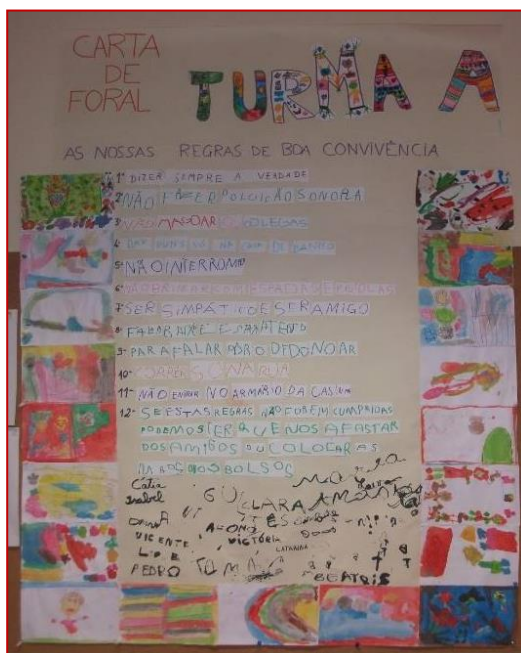 CARTA
DE
FORAL
TURMA A
AS NOSSAS REGRAS DE BOA CONVIVÊNCIA
1ª DIZER SEMPRE A VERDADE
2ª NÃO FAZER POLOIÇÃO SONORA
3ª NÃO MAGOAR OS COLEGAS
4ª DAR PUNS SÓ NA CASA DE BANHO
5ª NÃO INTERROMP
6ª NÃO BRINCAR COM ESPADAS E PISTOLAS
7ª SER SIMPÁTICO E SER AMIGO
8ª FALAR E ESTAR ATENTO
9ª PARA FALAR PÔR O DEDO NO AR
10ª CORRER SÓ NA RUA
11ª NÃO ENTRAR NO ARMÁRIO DA CASINHA
12ª SE ESTAS REGRAS NÃO FOREM CUMPRIDAS
PODEMOS TER QUE NOS AFASTAR
DOS AMIGOS OU COLOCAR AS
NOS BOLSOS
Catia
Isabel
CLARA
VICENTE
VICTÓRIA
CATARINA
PEDRO
TOMÁS
BEATRIS